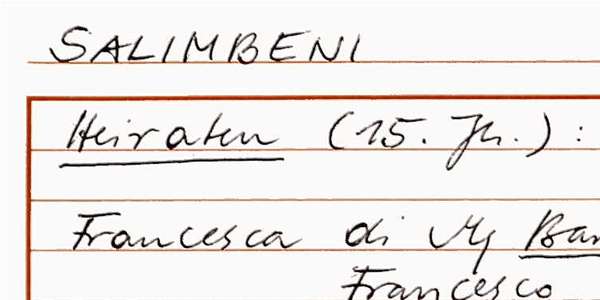 SALIMBENI
Heiraten (15. Jh.):
Francesca di Mg Ban
Francesco